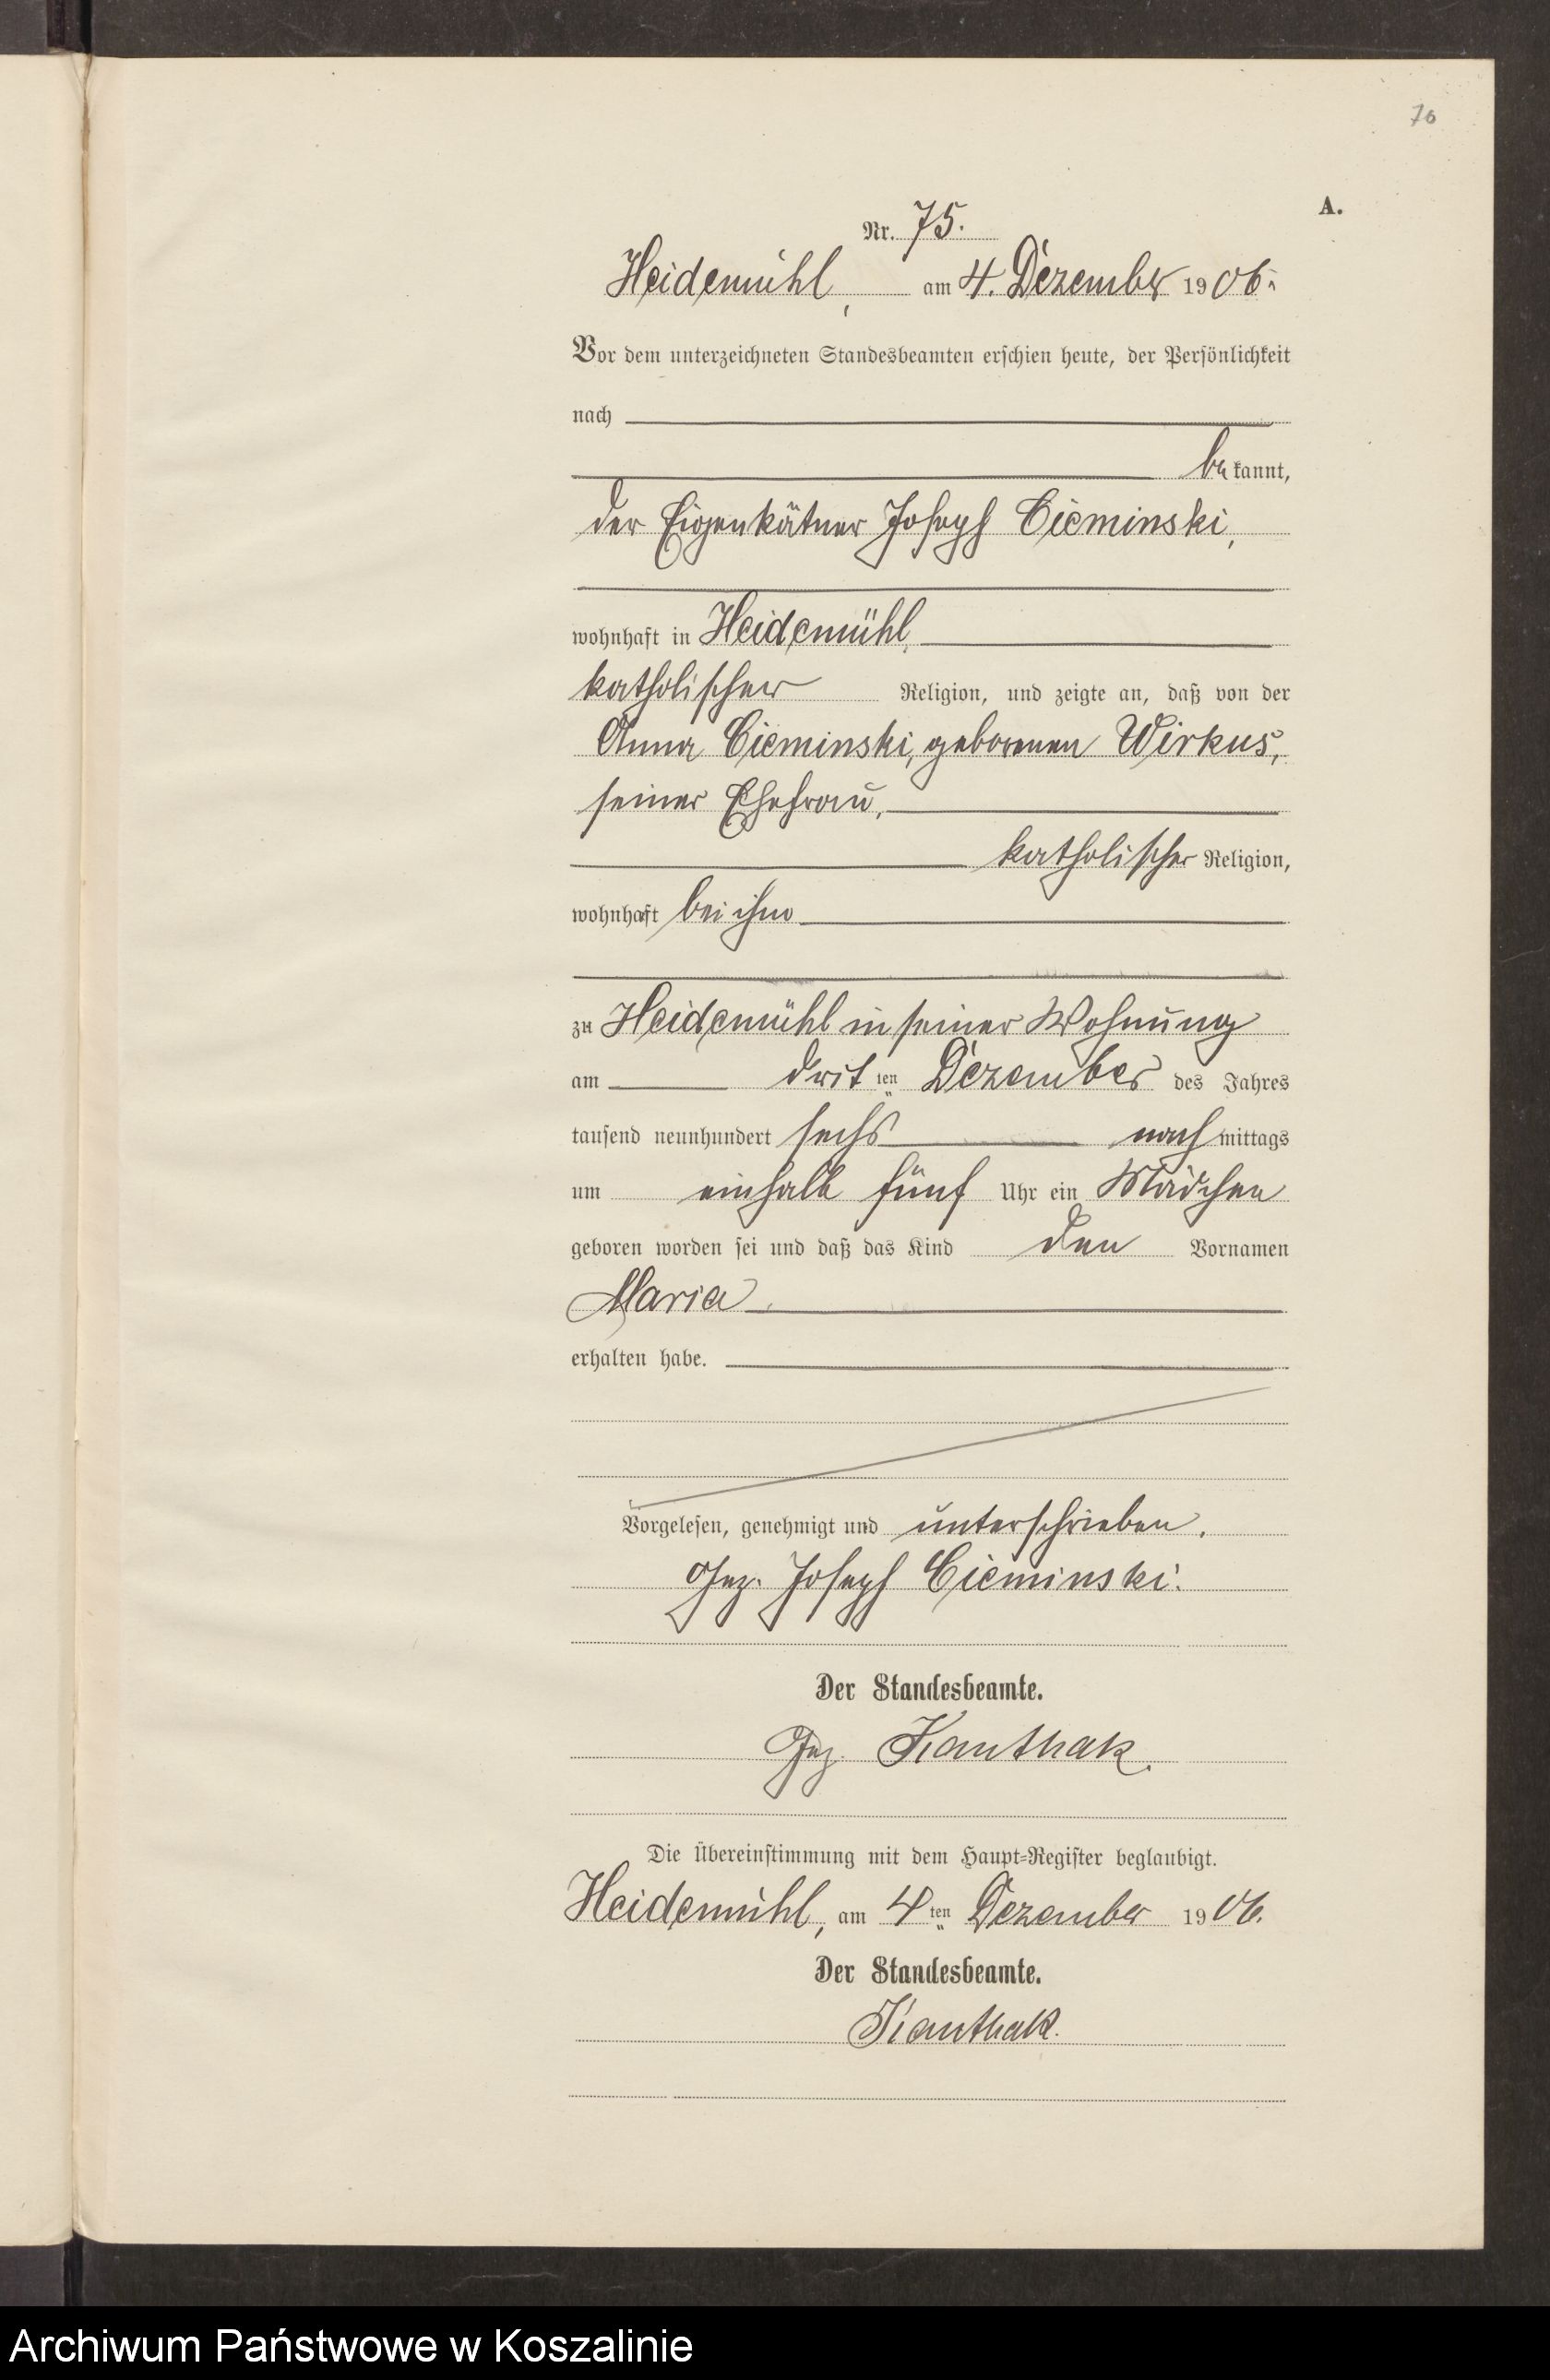 70
A.
Nr. 75.
Heidemühl, am 4. Dezember 1906.
Vor dem unterzeichneten Standesbeamten erschien heute, der Persönlichkeit
nach
bekannt,
der Eigenkätner Joseph Cieminski,
wohnhaft in Heidemühl,
katholischer Religion, und zeigte an, daß von der
Anna Cieminski, geborenen Wirkus,
seiner Ehefrau,
katholischer Religion,
wohnhaft bei ihm
zu Heidemühl in seiner Wohnung
am dritten Dezember des Jahres
tausend neunhundert sechs nachmittags
um einhalb fünf Uhr ein Mädchen
geboren worden sei und daß das Kind den Vornamen
Maria
erhalten habe.
Vorgelesen, genehmigt und unterschrieben.
Gez. Joseph Cieminski.
Der Standesbeamte.
Gez. Kanthak.
Die Übereinstimmung mit dem Haupt-Register beglaubigt.
Heidemühl, am 4ten Dezember 1906.
Der Standesbeamte.
Kanthak.
Archiwum Państwowe w Koszalinie